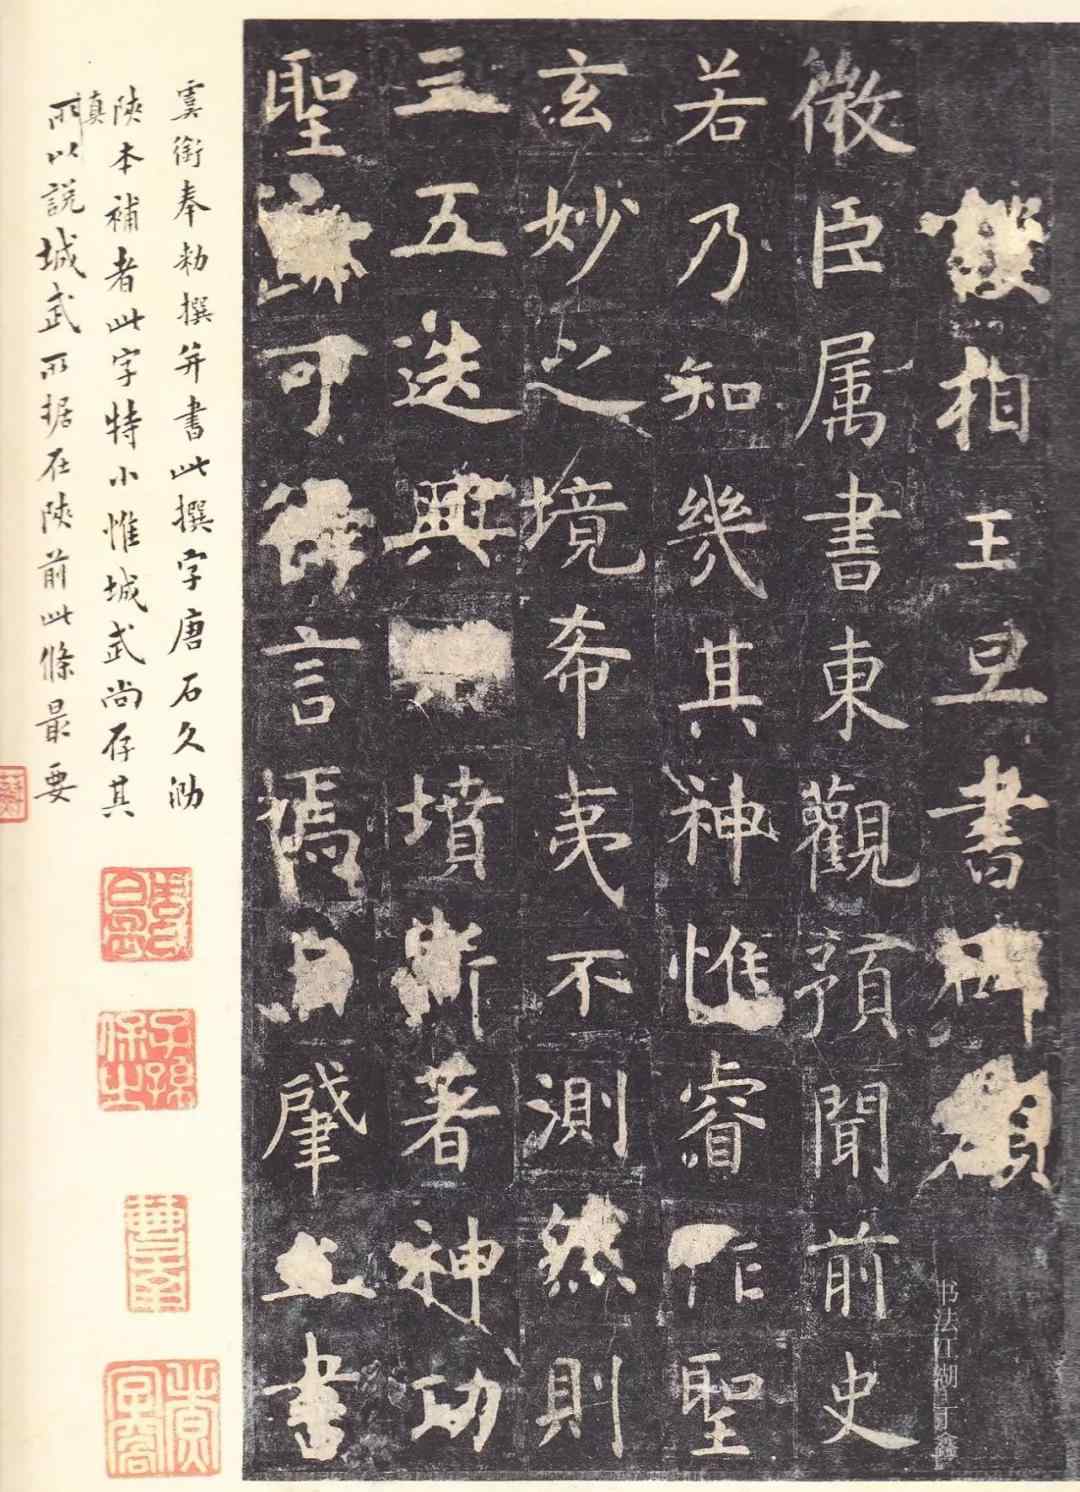 護相王旦書碑額
微臣属書東觀預聞前史
若乃知幾其神惟睿作聖
玄妙之境希夷不測然則
三五迭興墳斯著神功
聖跡可得言焉自肇立書
虞銜奉勑撰并書此撰字唐石久泐
陝本補者此字特小惟城武尚存其
真所以說城武所据在陝前此條最要
子孫保之
书法江湖 丁鑫